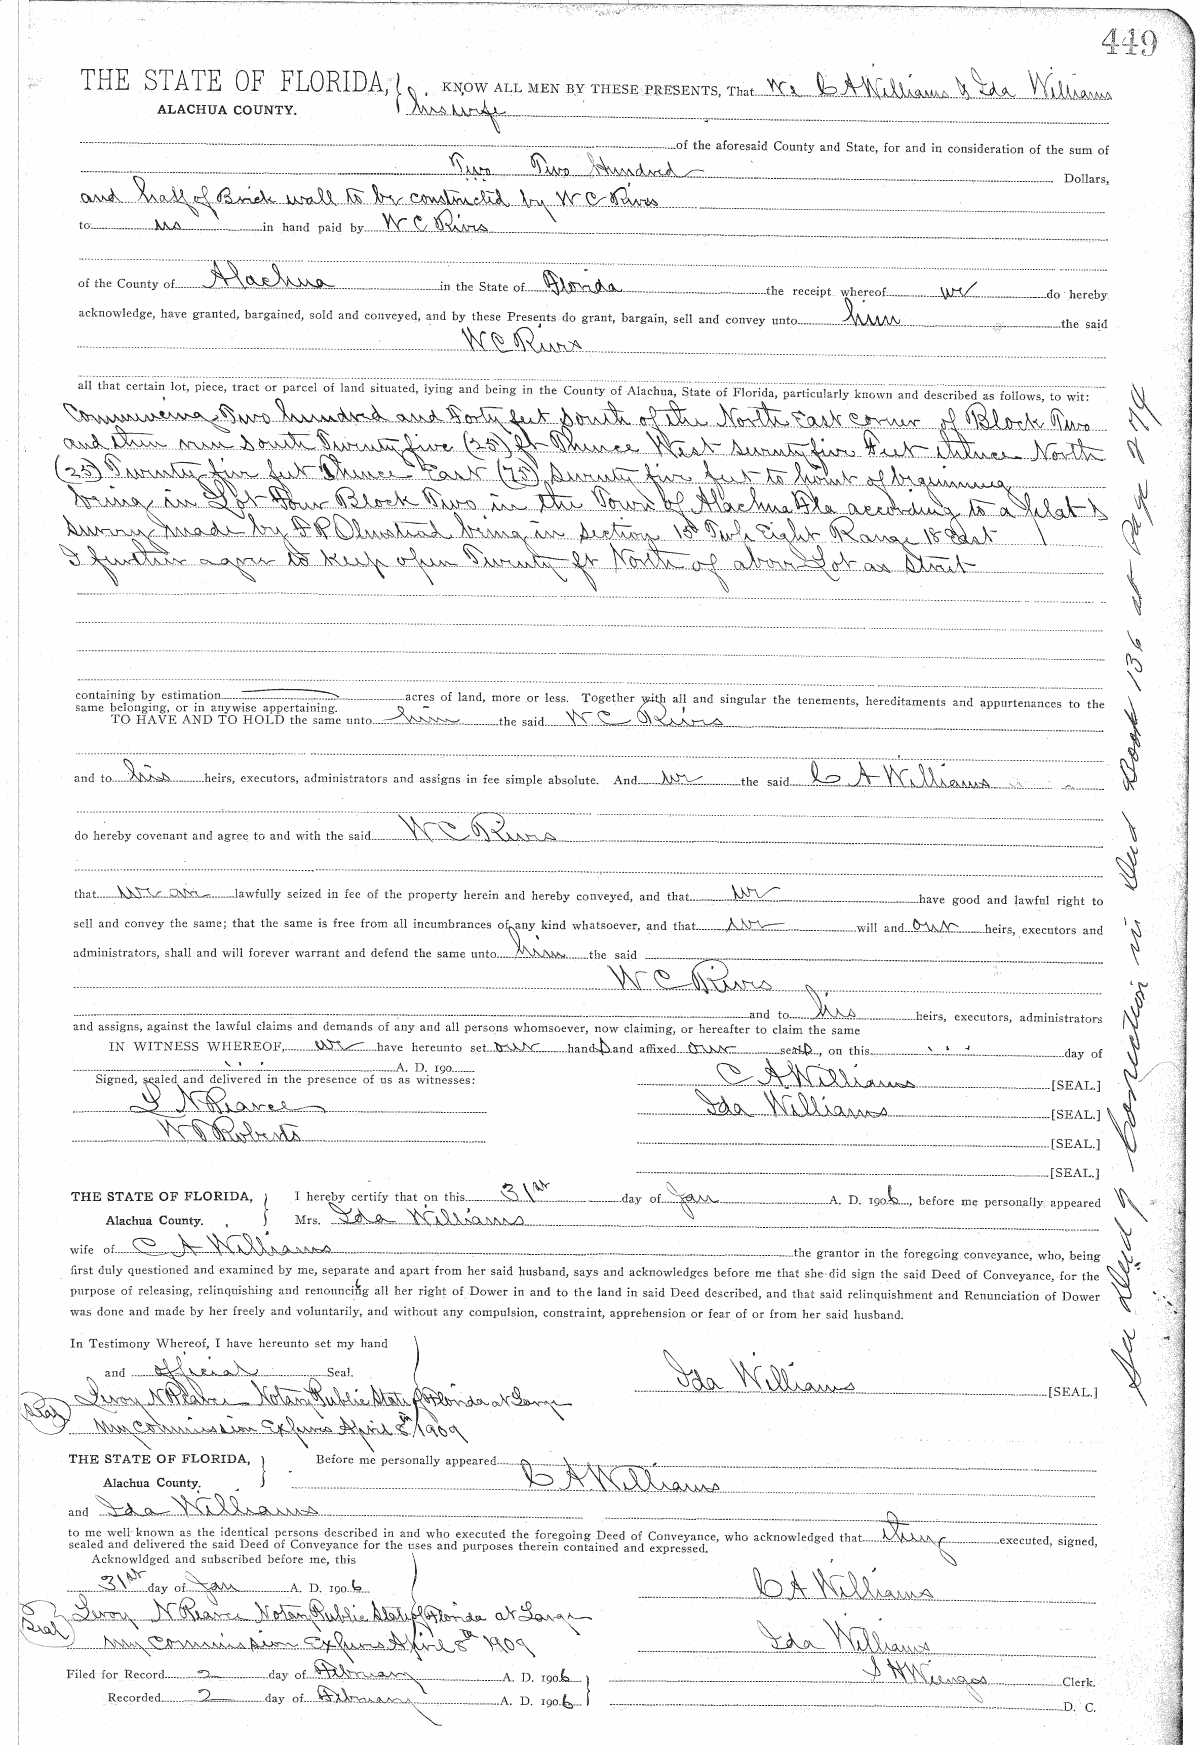 449
THE STATE OF FLORIDA, KNOW ALL MEN BY THESE PRESENTS, That We C A Williams & Ida Williams
ALACHUA COUNTY. his wife
of the aforesaid County and State, for and in consideration of the sum of
Two Two Hundred Dollars,
and half of Brick wall to be constructed by W C Rivrs
to us in hand paid by W C Rivrs
of the County of Alachua in the State of Florida the receipt whereof we do hereby
acknowledge, have granted, bargained, sold and conveyed, and by these Presents do grant, bargain, sell and convey unto him the said
W C Rivrs
all that certain lot, piece, tract or parcel of land situated, lying and being in the County of Alachua, State of Florida, particularly known and described as follows, to wit:
Commencing Two hundred and Forty feet South of the North East corner of Block Two
and then run South Twenty five (25) ft Thence West seventy five Feet thence North
(25) Twenty five feet Thence East (75) Seventy five feet to point of beginning
being in Lot Four Block Two in the Town of Alachua Fla according to a plat &
survey made by F P Olmstead being in section 15 Twp Eight Range 18 East
I further agree to keep open Twenty ft North of above Lot as Street
containing by estimation acres of land, more or less. Together with all and singular the tenements, hereditaments and appurtenances to the
same belonging, or in anywise appertaining.
TO HAVE AND TO HOLD the same unto him the said W C Rivrs
and to his heirs, executors, administrators and assigns in fee simple absolute. And we the said C A Williams
do hereby covenant and agree to and with the said W C Rivrs
that we are lawfully seized in fee of the property herein and hereby conveyed, and that we have good and lawful right to
sell and convey the same; that the same is free from all incumbrances of any kind whatsoever, and that we will and our heirs, executors and
administrators, shall and will forever warrant and defend the same unto him the said
W C Rivrs
and to his heirs, executors, administrators
and assigns, against the lawful claims and demands of any and all persons whomsoever, now claiming, or hereafter to claim the same
IN WITNESS WHEREOF, we have hereunto set our hands and affixed our seals, on this day of
A. D. 190
Signed, sealed and delivered in the presence of us as witnesses: C A Williams [SEAL.]
L N Pearce Ida Williams [SEAL.]
W T Roberts [SEAL.]
[SEAL.]
THE STATE OF FLORIDA, I hereby certify that on this 31st day of Jan A. D. 1906, before me personally appeared
Alachua County. Mrs. Ida Williams
wife of C A Williams the grantor in the foregoing conveyance, who, being
first duly questioned and examined by me, separate and apart from her said husband, says and acknowledges before me that she did sign the said Deed of Conveyance, for the
purpose of releasing, relinquishing and renouncing all her right of Dower in and to the land in said Deed described, and that said relinquishment and Renunciation of Dower
was done and made by her freely and voluntarily, and without any compulsion, constraint, apprehension or fear of or from her said husband.
In Testimony Whereof, I have hereunto set my hand
and official Seal. Ida Williams [SEAL.]
Seal Leroy N Pearce Notary Public State of Florida at Large
My Commission Expires April 8th 1909
THE STATE OF FLORIDA, Before me personally appeared
Alachua County. C A Williams
and Ida Williams
to me well known as the identical persons described in and who executed the foregoing Deed of Conveyance, who acknowledged that they executed, signed,
sealed and delivered the said Deed of Conveyance for the uses and purposes therein contained and expressed.
Acknowldged and subscribed before me, this
31st day of Jan A. D. 1906 C A Williams
Seal Leroy N Pearce Notary Public State of Florida at Large
My Commission Expires April 8th 1909 Ida Williams
Filed for Record 2 day of February A. D. 1906 S H Wienges Clerk.
Recorded 2 day of February A. D. 1906 D. C.
See Deed of Correction in Deed Book 136 at Page 274